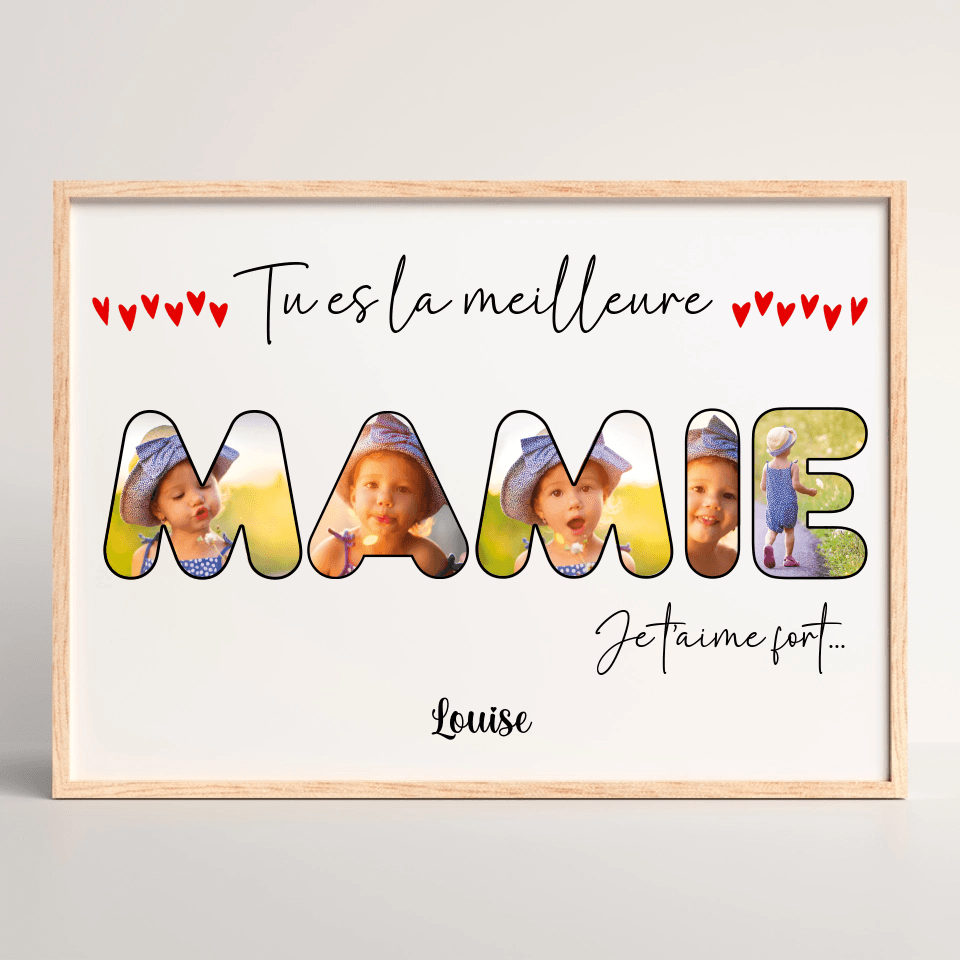 Tu es la meilleure
MAMIE
Je t'aime fort...
Louise